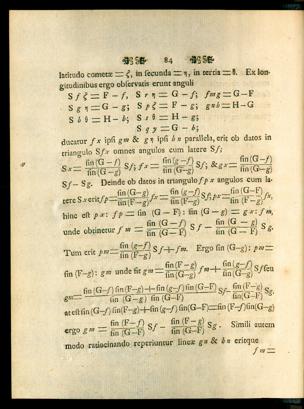 84
latitudo cometæ = ζ, in secunda = η, in tertia = θ. Ex lon-
gitudinibus ergo observatis erunt anguli
S f ζ = F − f, S r η = G − f; f m g = G − F
S g η = G − g; S p ζ = F − g; g n b = H − G
S b θ = H − b; S s θ = H − g;
S q p = G − b;
ducatur f x ipsi g m & g η ipsi b n parallela, erit ob datos in
triangulo S f x omnes angulos cum latere S f;
S x = sin (G−f)/sin (G−g) S f; f x = sin (g−f)/sin (G−g) S f; & g x = sin (G−f)/sin (G−g)
S f − S g. Deinde ob datos in triangulo f p x angulos cum la-
hinc est p x : f p = sin (G − F) : sin (G − g) = g x : f m,
unde obtinetur f m = sin (G − f)/sin (G−F) S f − sin (G − g)/sin (G−F) S g.
Tum erit p m = sin (g−f)/sin (F−g) S f + f m. Ergo sin (G−g) : p m =
sin (F−g) : g m unde fit g m = sin (F−g)/sin (G−g) f m + sin (g−f)/sin (G−g) S f seu
g m = sin (G−f) sin (F−g) + sin (g−f) sin (G−F)/sin (G−g) sin (G−F) S f − sin (F−g)/sin (G−F) S g.
at est sin (G−f) sin (F−g) + sin (g−f) sin (G−F) = sin (F−f) sin (G−g)
ergo g m = sin (F−f)/sin (G−F) S f − sin (F−g)/sin (G−F) S g. Simili autem
modo ratiocinando reperiuntur lineæ g n & b n eritque
f m =